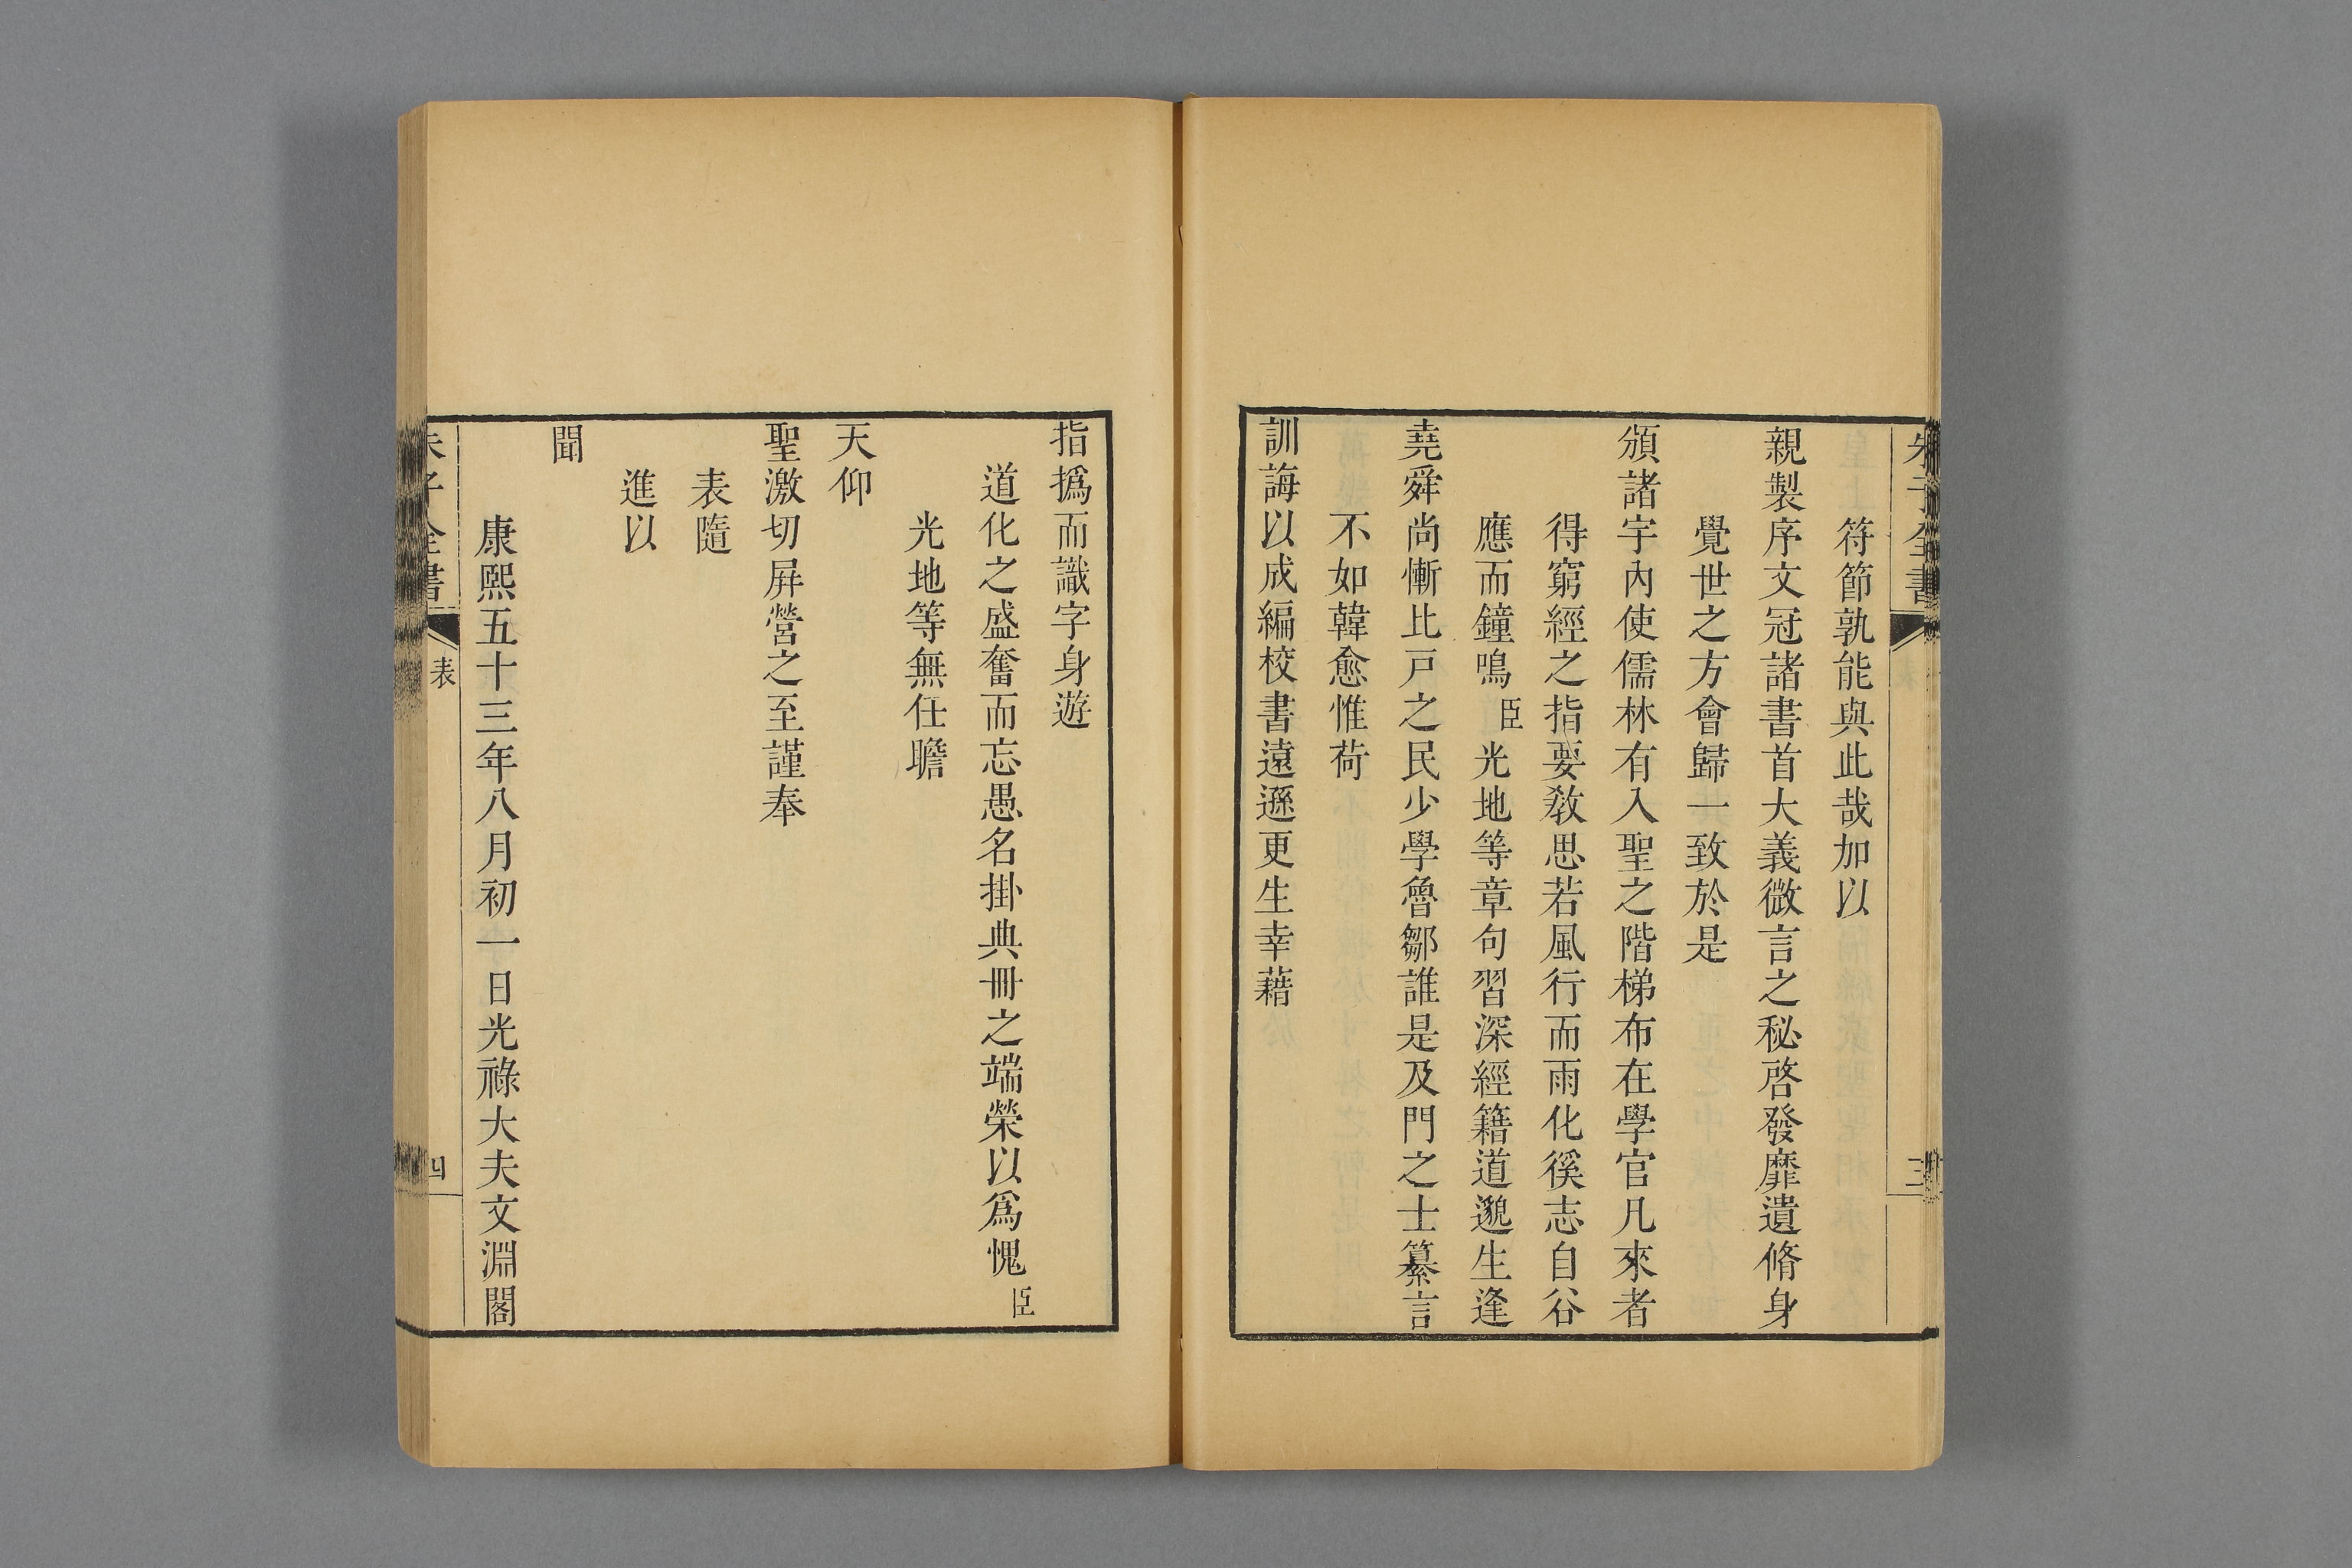 朱子全書
三
符節孰能與此哉加以
親製序文冠諸書首大義微言之秘啓發靡遺脩身
覺世之方會歸一致於是
頒諸宇內使儒林有入聖之階梯布在學官凡來者
得窮經之指要敎思若風行而雨化徯志自谷
應而鐘鳴臣光地等章句習深經籍道邈生逢
堯舜尚慚比戸之民少學魯鄒誰是及門之士纂言
不如韓愈惟荷
訓誨以成編校書遠遜更生幸藉
指撝而識字身遊
道化之盛奮而忘愚名掛典冊之端榮以爲愧臣
光地等無任瞻
天仰
聖激切屛營之至謹奉
表隨
進以
聞
康熙五十三年八月初一日光祿大夫文淵閣
朱子全書
表
四